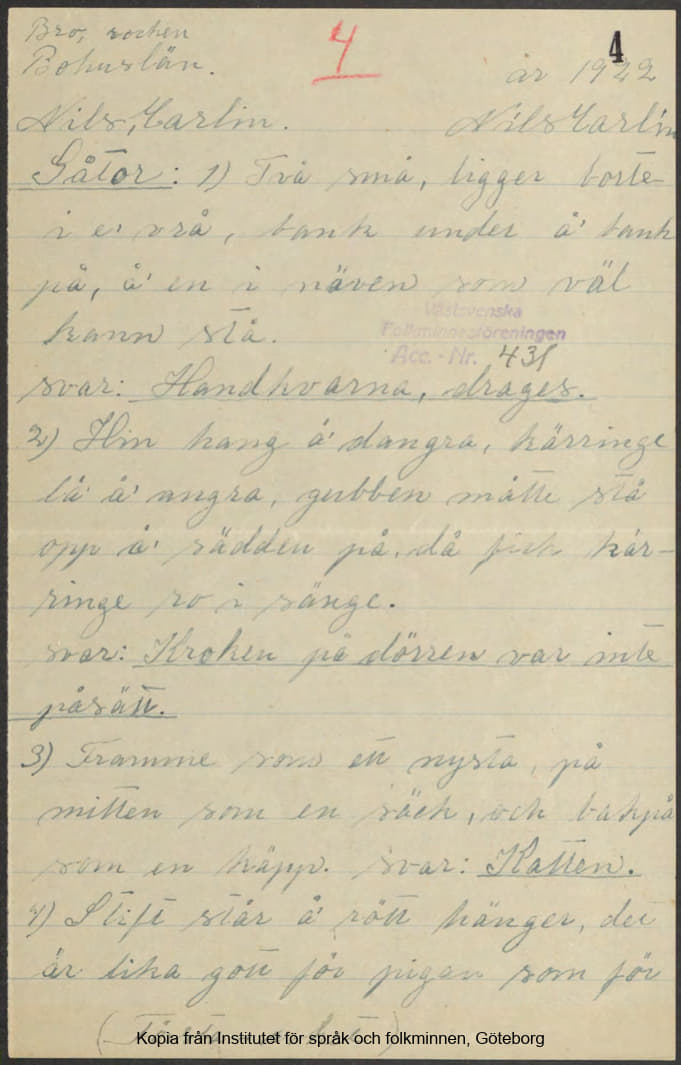 Bro, socken
Bohuslän.
4
4
år 1922
Nils, Carlin. Nils Carlin
Gåtor: 1) Två små, ligger borte
i e' vrå, bank under å' bank
på, å' en i näven som väl
kann stå.
Västsvenska
Folkminnesföreningen
Acc. - Nr. 431
svar: Handkvarna, drages.
2) Hin hang å' dangra, kärringe
lå å' angra, gubben måtte stå
opp å' sädden på. då fick kär-
ringe ro i sänge.
svar: Kroken på dörren var inte
påsätt.
3) Framme som ett nysta, på
mitten som en säck, och bakpå
som en käpp. svar: Katten.
4) Stift står å' rött hänger, det
är lika gott för pigan som för
Kopia från Institutet för språk och folkminnen, Göteborg